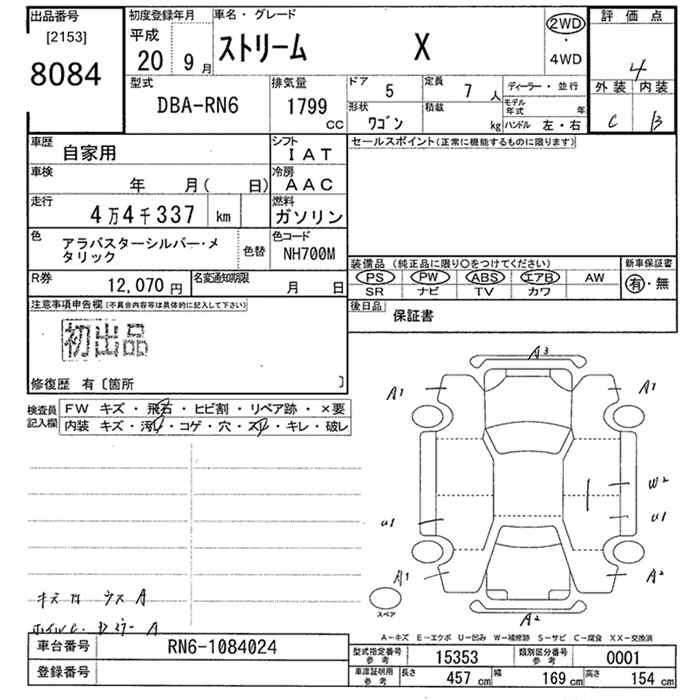 出品番号 初度登録年月 車名・グレード 評価点
[2153] 平成 2WD
8084 20 9月 ストリーム X ・ 4
4WD 外装 内装
型式 排気量 ドア 定員 ディーラー・並行 C B
DBA-RN6 1799 5 7 人 モデル年式 年
cc 形状 積載
ワゴン kg ハンドル 左・右
車歴 自家用 シフト セールスポイント(正常に機能するものに限ります)
IAT
車検 年 月( 日) 冷房
AAC
走行 4万4千337 km 燃料
ガソリン
色 アラバスターシルバー・メタリック 色替 色コード
NH700M
装備品 (純正品に限り○をつけてください) 新車保証書
R券 12,070 円 名変通知期限 月 日 PS PW ABS エアB AW 有・無
SR ナビ TV カワ
注意事項申告欄(不具合内容等は具体的に記入して下さい) 後日品 保証書
初出品
修復歴 有〔箇所 〕
検査員記入欄 FW キズ・飛石・ヒビ割・リペア跡・×要
内装 キズ・汚れ・コゲ・穴・スレ・キレ・破レ
A3
A1 A1
W2
U1 U1
A1 A2
スペア
A2
A
A
A−キズ E−エクボ U−凹み W−補修跡 S−サビ C−腐食 XX−交換済
車台番号 RN6-1084024 型式指定番号 参考 15353 類別区分番号 参考 0001
登録番号 車庫証明用 参考 長さ 457 cm 幅 169 cm 高さ 154 cm